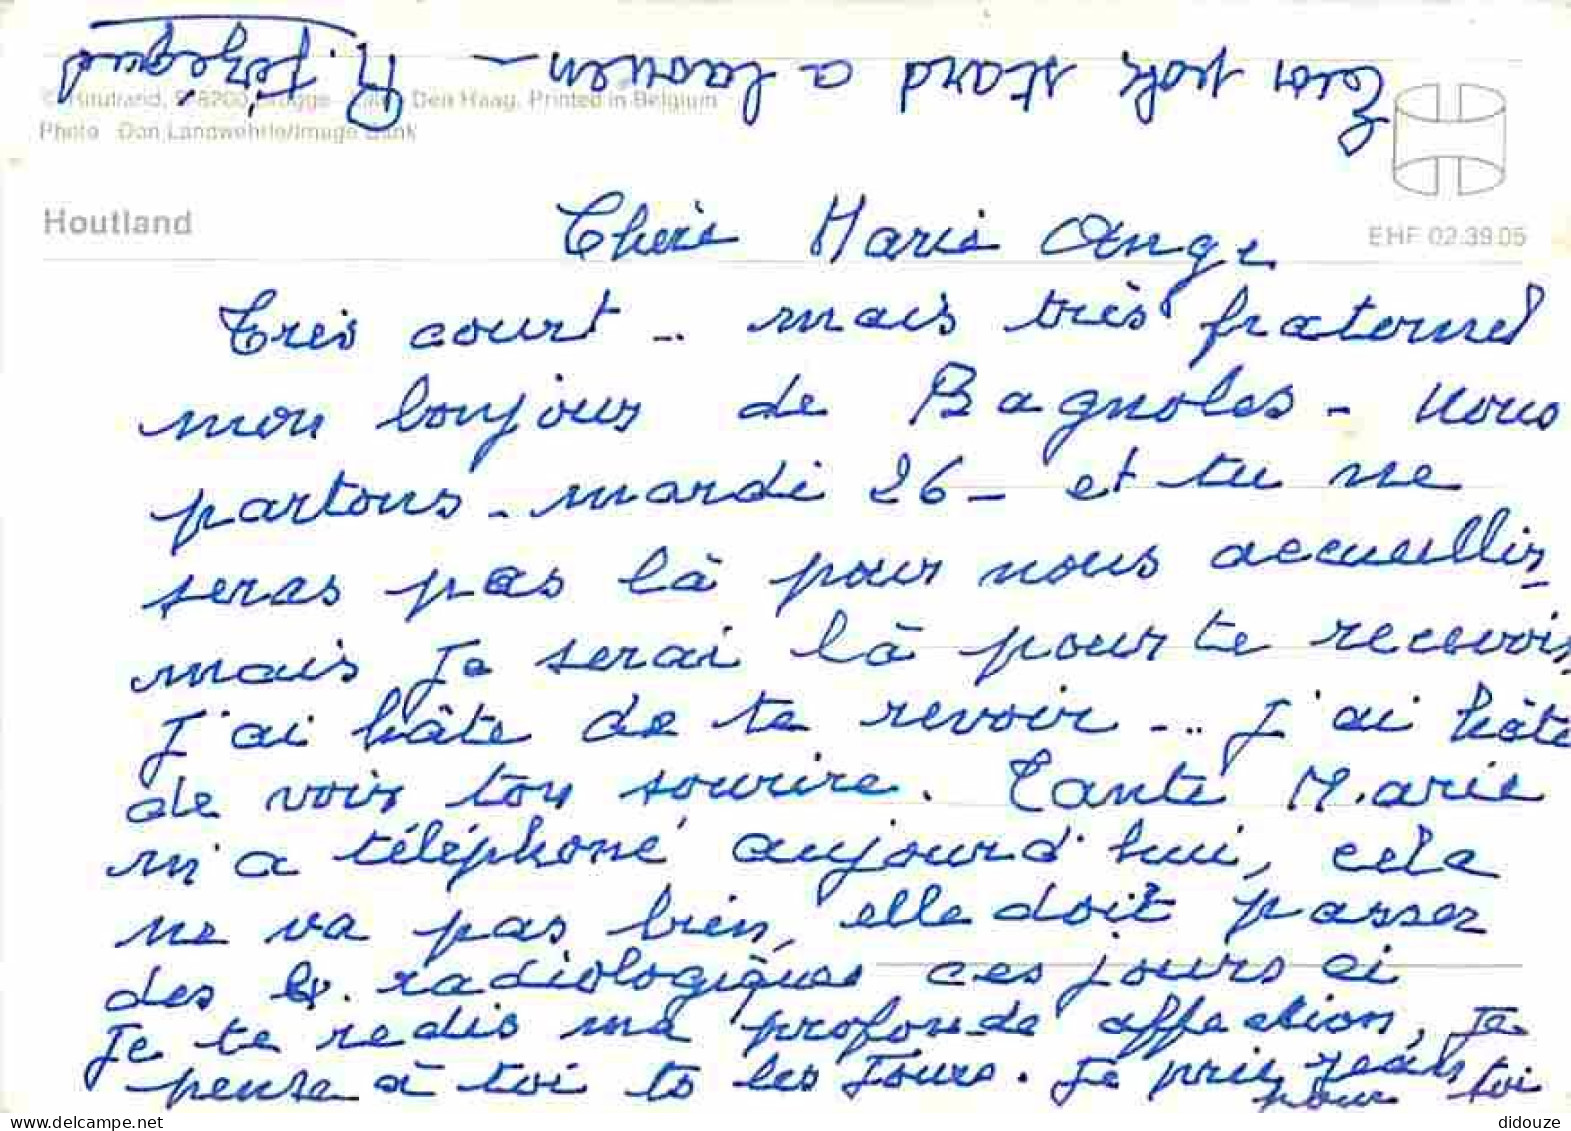 Houtland
EHF 02.39.05
Chère Marie Ange
Très court .. mais très fraternel
mon bonjour de Bagnoles - nous
partons - mardi 26 - et tu ne
seras pas là pour nous accueillir -
mais je serai là pour te recevoir
J'ai hâte de te revoir ... J'ai hâte
de voir ton sourire. Tante Marie
m'a téléphoné aujourd'hui, cela
ne va pas bien, elle doit passer
des radiologiques ces jours ci
Je te redis ma profonde affection, je
pense à toi ts les jours. Je prie
pour toi
Printed in Belgium
Photo Don Landwehrle/Image Bank
a laouen -
didouze